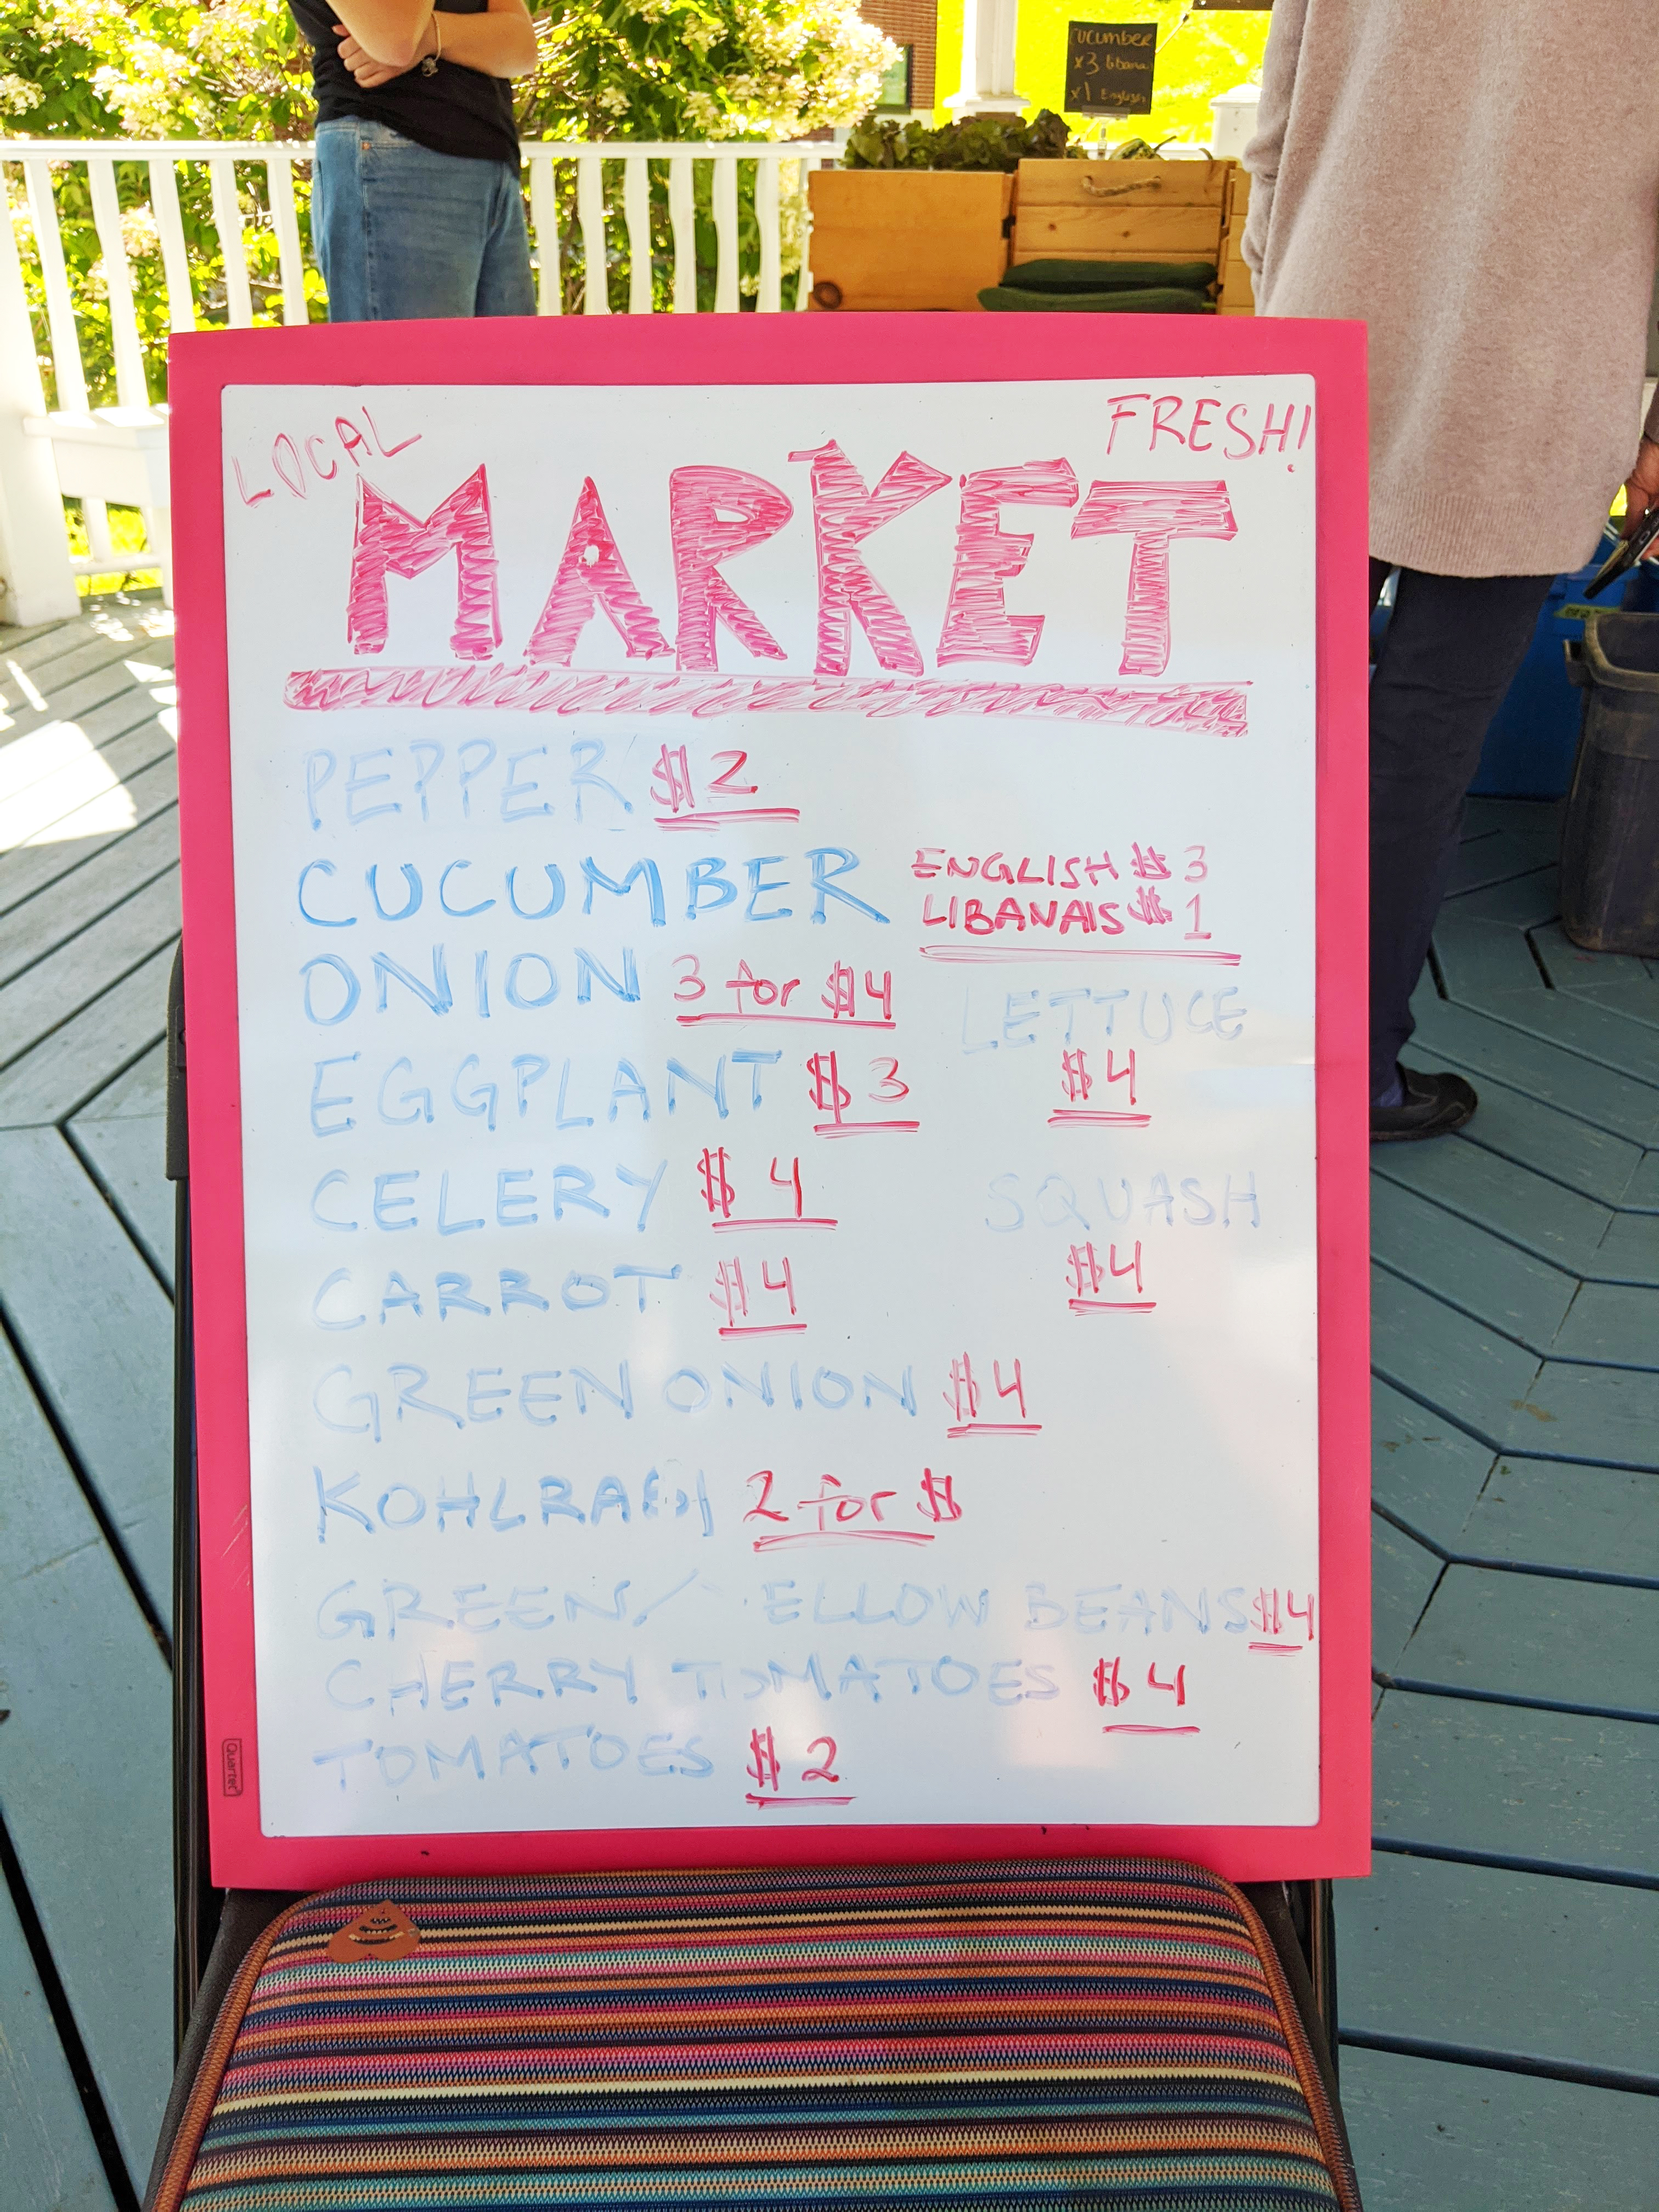 CUCUMBER
x3 libanai
x1 English
LOCAL
FRESH!
MARKET
PEPPER $2
CUCUMBER ENGLISH $3
LIBANAIS $1
ONION 3 for $4
LETTUCE
$4
EGGPLANT $3
CELERY $4
SQUASH
$4
CARROT $4
GREEN ONION $4
KOHLRABI 2 for $
GREEN/ ELLOW BEANS $4
CHERRY TOMATOES $4
TOMATOES $2
Quartet